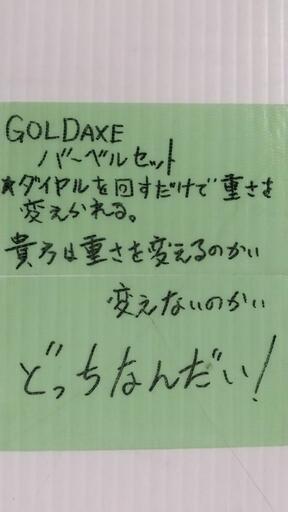 GOLDAXE
バーベルセット
★ダイヤルを回すだけで重さを
変えられる。
貴方は重さを変えるのかい
変えないのかい
どっちなんだい!